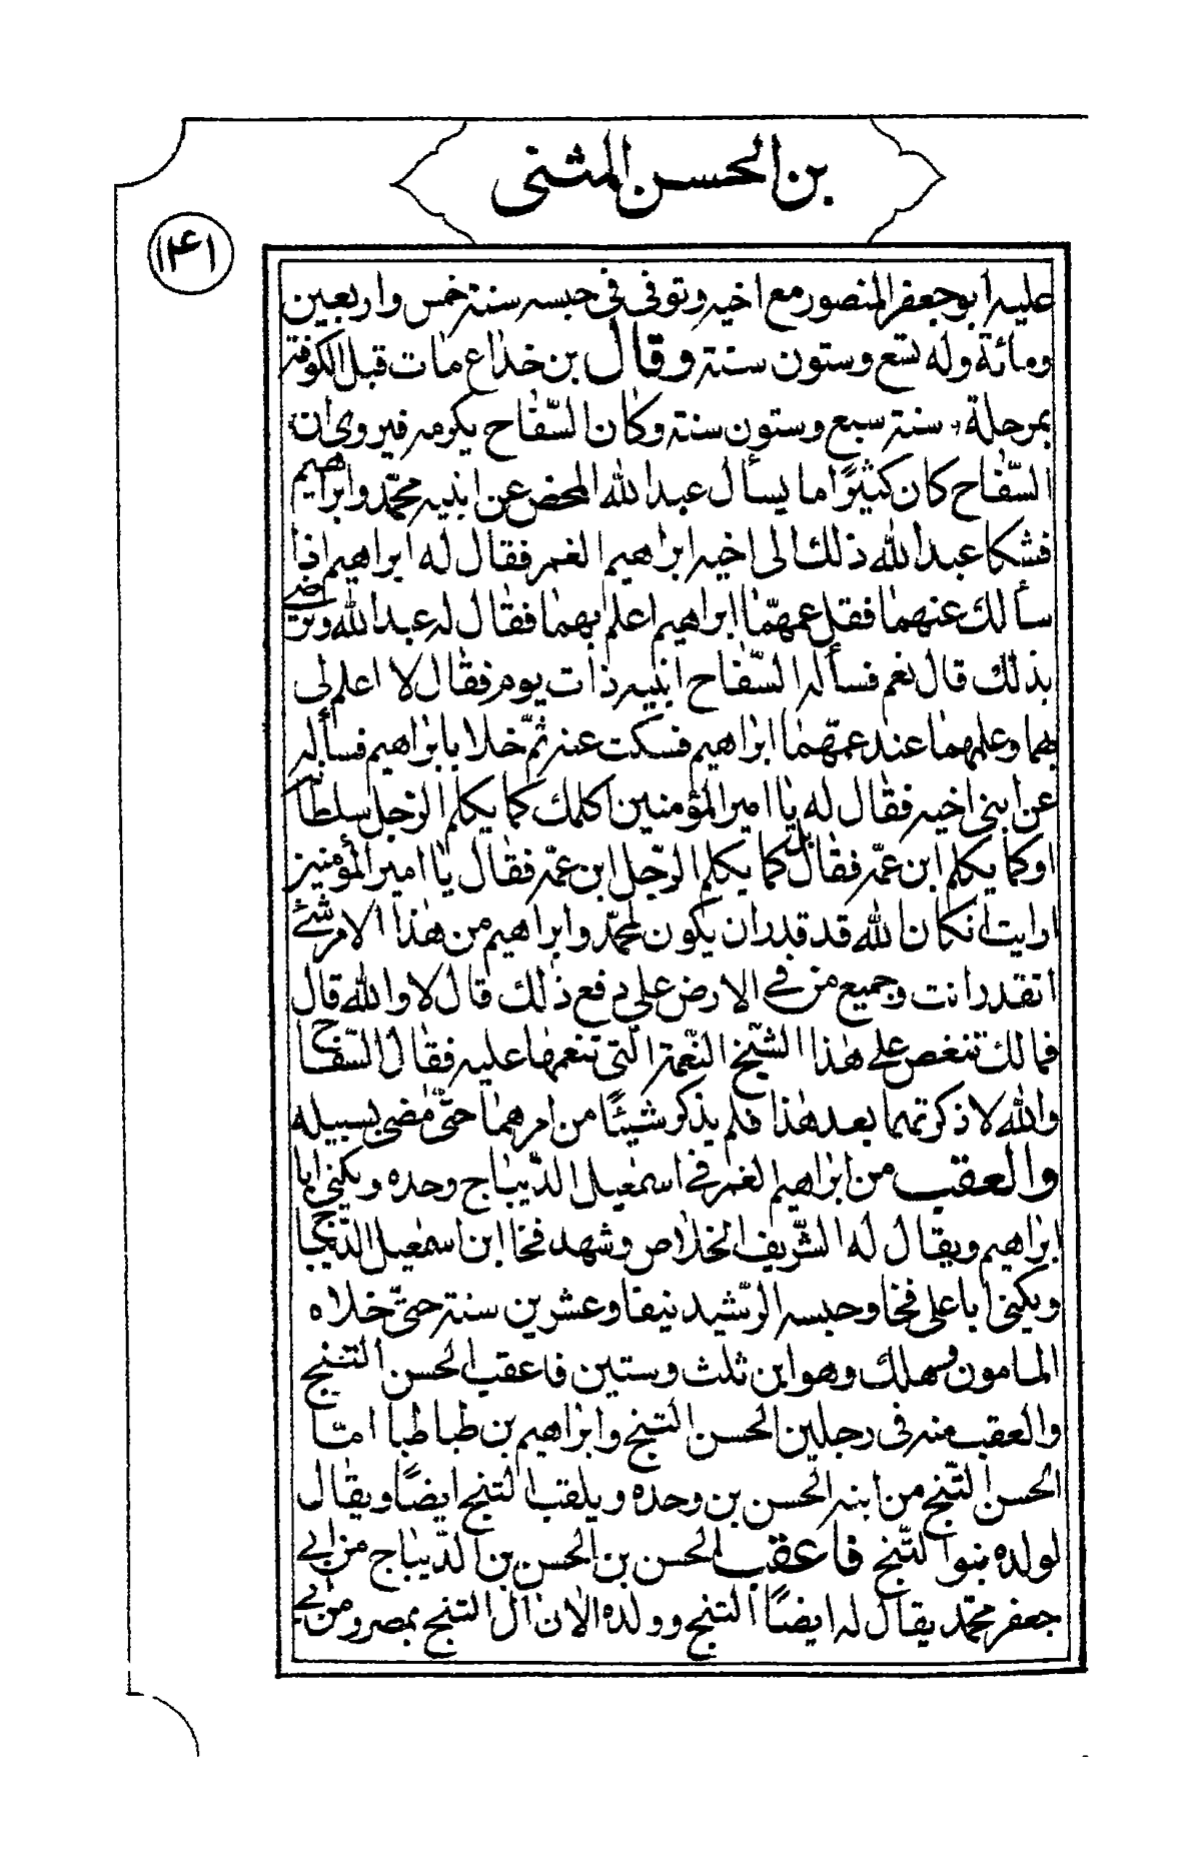 بن الحسن المثنى
١۴١
عليه ابو جعفر المنصور مع اخيه وتوفى فى حبسه سنة خمس واربعين
ومائة وله تسع وستون سنة وقال بن خداع مات قبل الكوفة
بمرحلة سنة سبع وستون سنة وكان السّفاح يكرمه فيروى ان
السّفاح كان كثيرًا ما يسأل عبد الله المحض عن ابنيه محمّد وابراهيم
فشكا عبد الله ذلك الى اخيه ابراهيم الغمر فقال له ابراهيم اذا
سألك عنهما فقل عمهّما ابراهيم اعلم بهما فقال له عبد الله وترضى
بذلك قال نعم فسأله السّفاح ابنيه ذات يوم فقال لا اعلم لى
بهما وعلمهما عند عمهّما ابراهيم فسكت عنه ثمّ خلا بابراهيم فسأله
عن ابنى اخيه فقال له يا امير المؤمنين اكلمك كما يكلم الرّجل سلطانه
اوكما يكلم ابن عمّه فقال بل كما يكلم الرّجل ابن عمّه فقال يا امير المؤمنين
ارايت انكان الله قد قدر ان يكون لمحمّد وابراهيم من هذا الامر شئ
اتقدر انت وجميع من فى الارض على دفع ذلك قال لا والله قال
فمالك تنغص على هذا الشّيخ النّعمة التّى تنعمها عليه فقال السّفاح
والله لا ذكرتهما بعد هذا فلم يذكر شيئًا من امرهما حتّى مضى بسبيله
والعقب من ابراهيم الغمر فى اسمعيل الدّيباج وحده ويكنى ابا
ابراهيم ويقال له الشّريف الخلاص وشهد فخا ابن اسمعيل الدّيباج
ويكنى ابا على فخا وحبسه الرّشيد نيفا وعشرين سنة حتّى خلاه
المامون وهلك وهو ابن ثلث وستين فاعقب الحسن التّنبج
والعقب منه فى رجلين الحسن التّنبج وابراهيم بن طباطبا امّا
الحسن التّنبج من ابنه الحسن بن وحده ويلقب التّنبج ايضًا ويقال
لولده بنو التّنبج فاعقب الحسن بن الحسن بن الدّيباج من ابى
جعفر محمّد يقال له ايضًا التنبج وولده الان ال التنبج بمصر ومن ابى